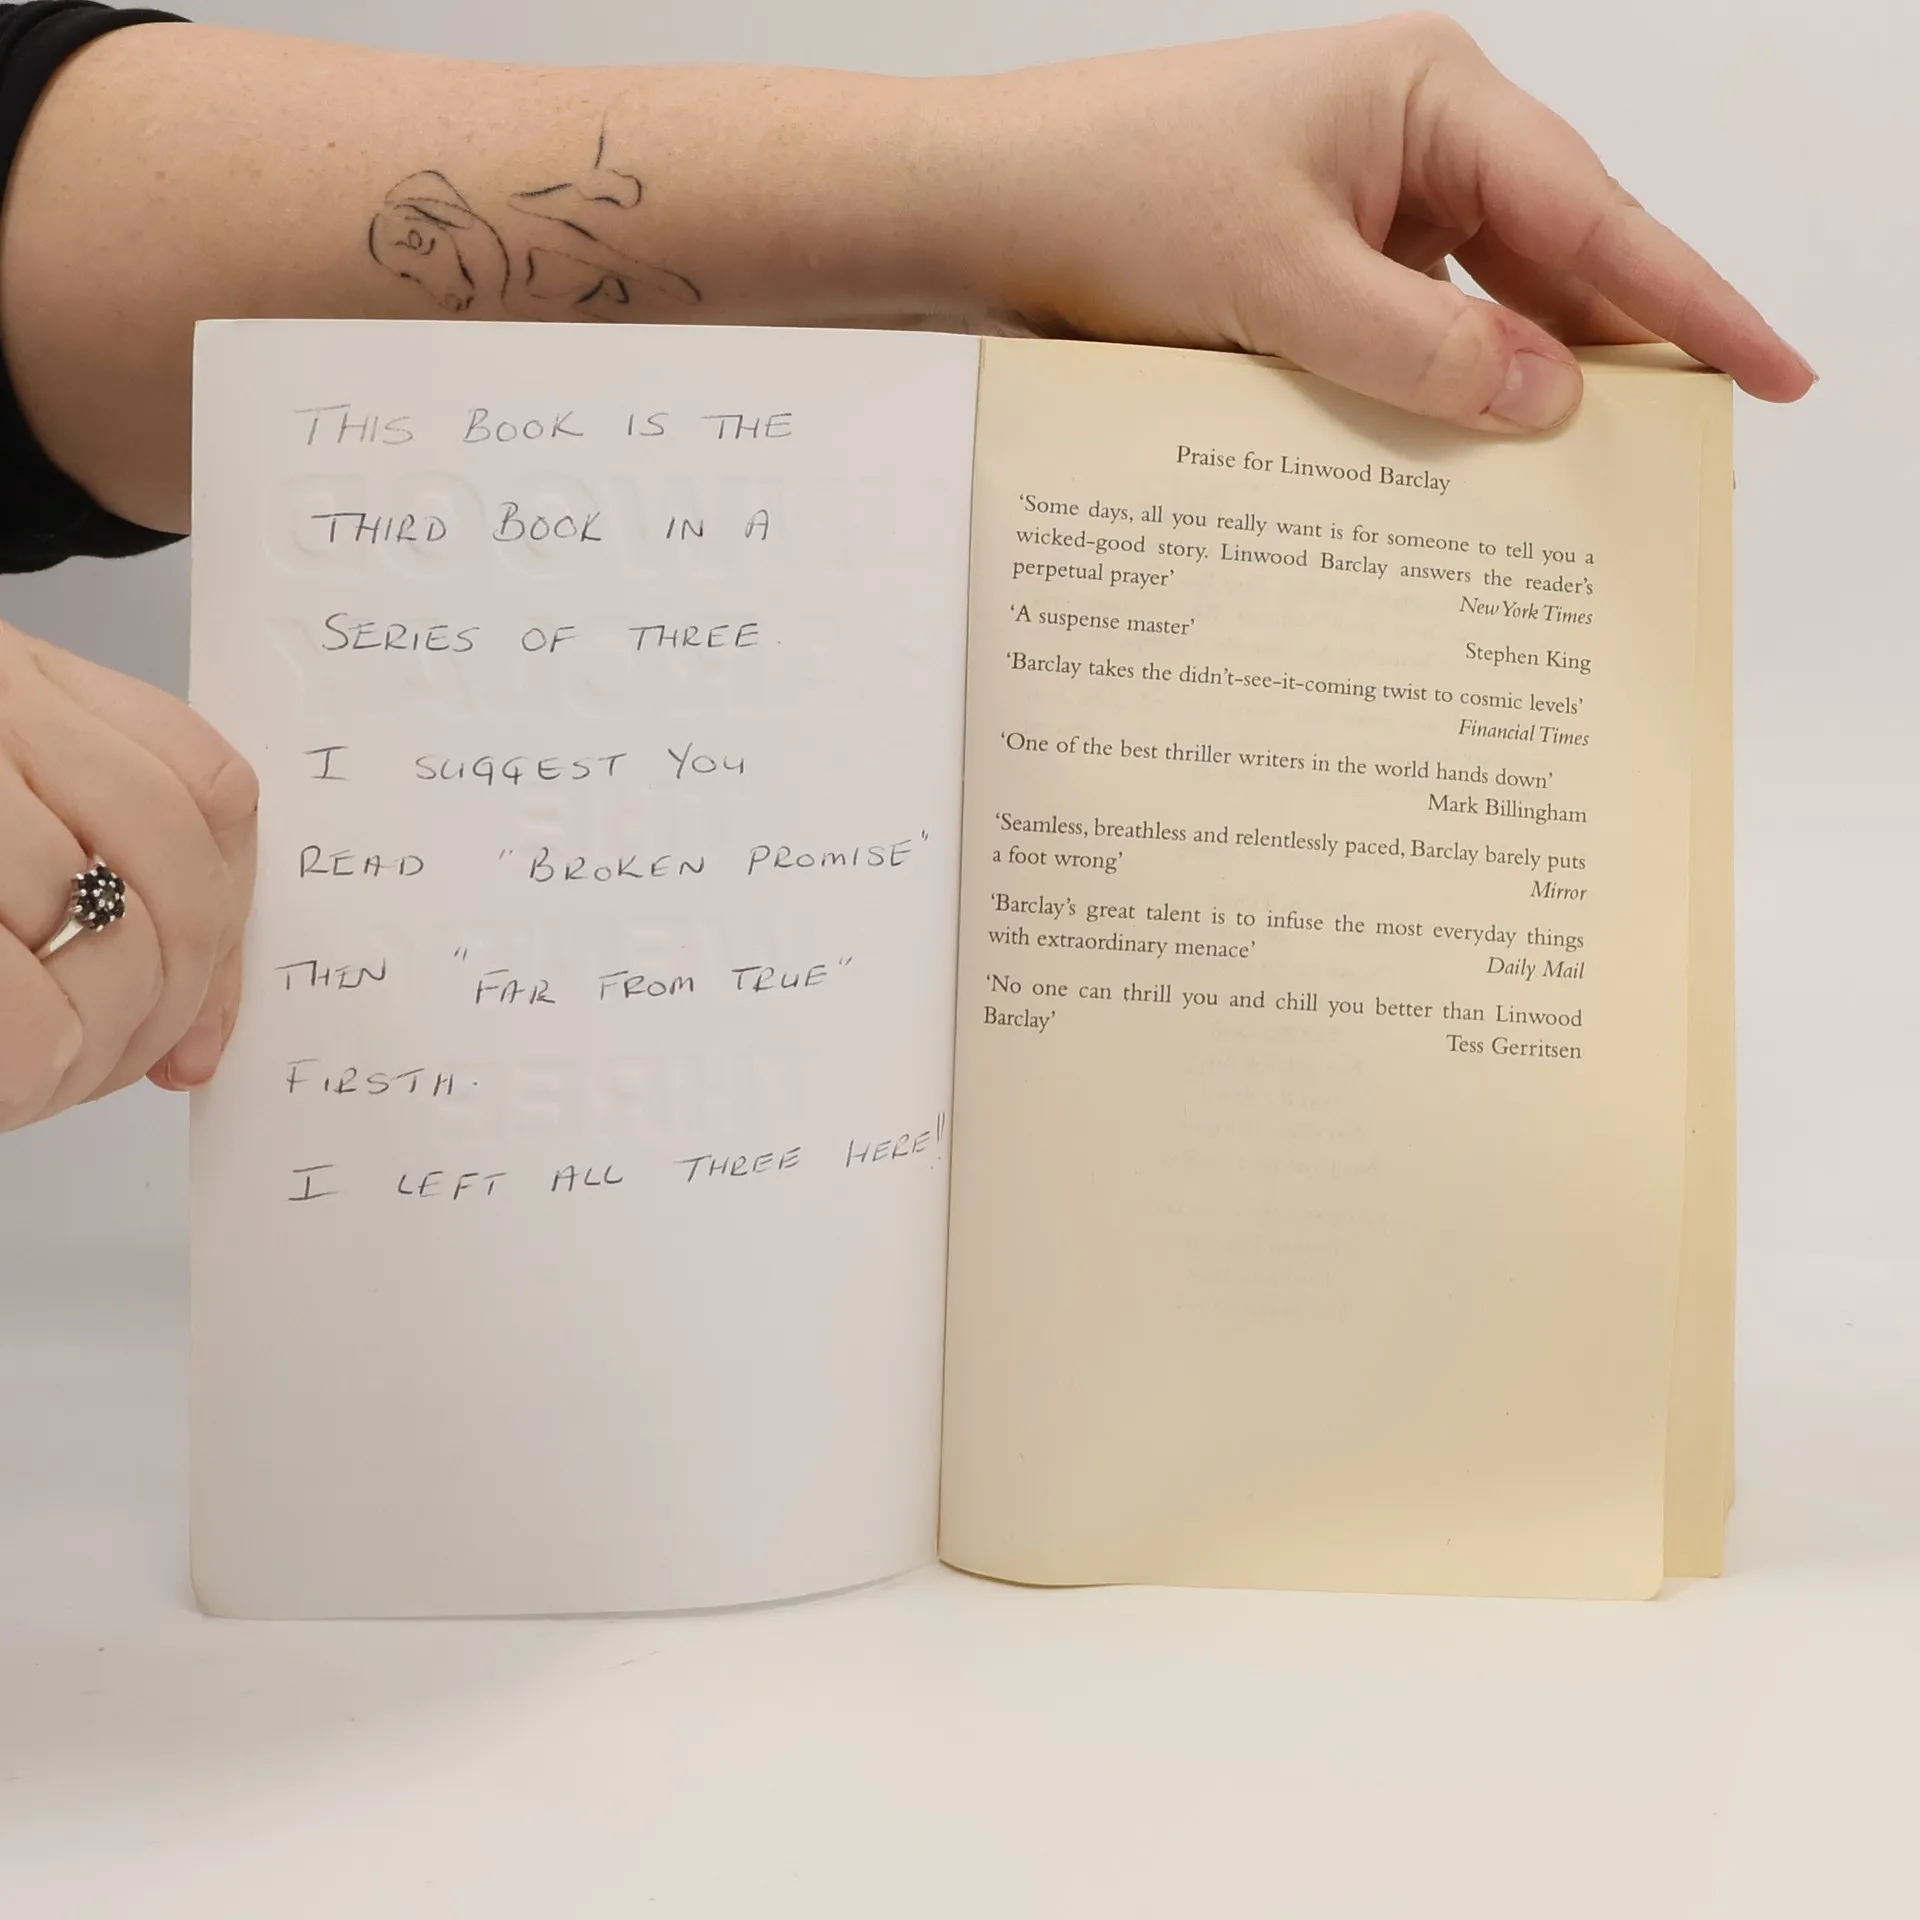 THIS BOOK IS THE
THIRD BOOK IN A
SERIES OF THREE.
I SUGGEST YOU
READ "BROKEN PROMISE"
THEN "FAR FROM TRUE"
FIRSTH.
I LEFT ALL THREE HERE!!
Praise for Linwood Barclay
‘Some days, all you really want is for someone to tell you a
wicked-good story. Linwood Barclay answers the reader’s
perpetual prayer’
New York Times
‘A suspense master’
Stephen King
‘Barclay takes the didn’t-see-it-coming twist to cosmic levels’
Financial Times
‘One of the best thriller writers in the world hands down’
Mark Billingham
‘Seamless, breathless and relentlessly paced, Barclay barely puts
a foot wrong’
Mirror
‘Barclay’s great talent is to infuse the most everyday things
with extraordinary menace’
Daily Mail
‘No one can thrill you and chill you better than Linwood
Barclay’
Tess Gerritsen